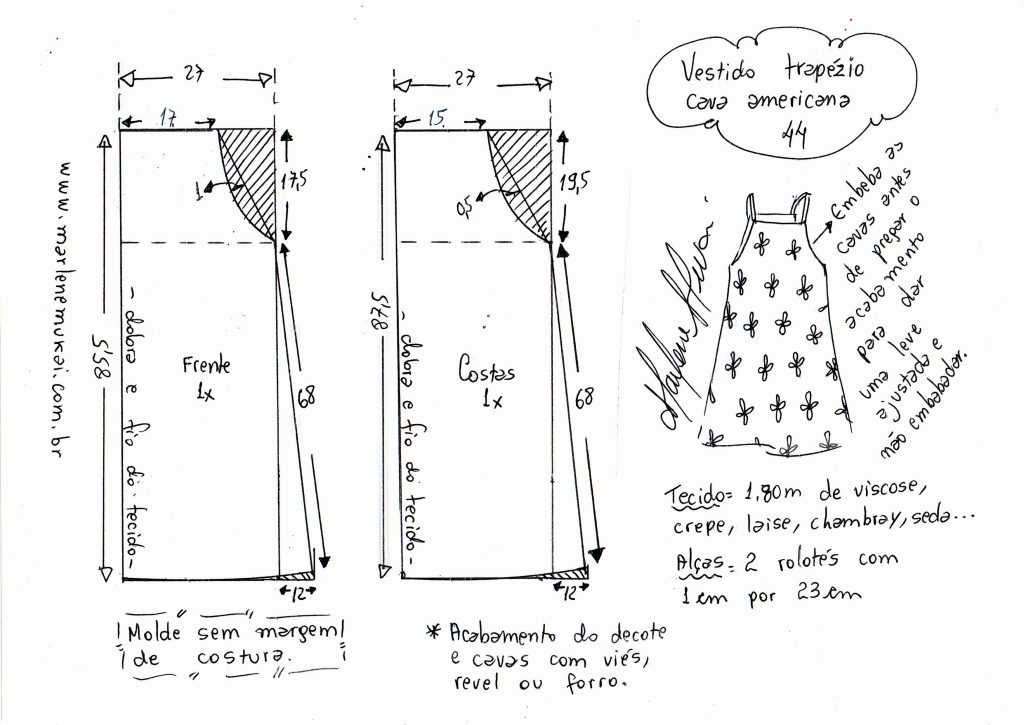 Vestido trapézio
cava americana
44
27
17
1
17,5
85,5
68
12
- dobra e fio do tecido -
Frente
1x
27
15
0,5
19,5
87,5
68
12
- dobra e fio do tecido -
Costas
1x
www.marlenemukai.com.br
Marlene Mukai
Embeba as
cavas antes
de pregar o
acabamento
para dar
uma leve
ajustada e
não embabadar.
Tecido= 1,80m de viscose,
crepe, laise, chambray, seda...
Alças= 2 rolotés com
1cm por 23cm
!Molde sem margem!
de costura.
* Acabamento do decote
e cavas com viés,
revel ou forro.